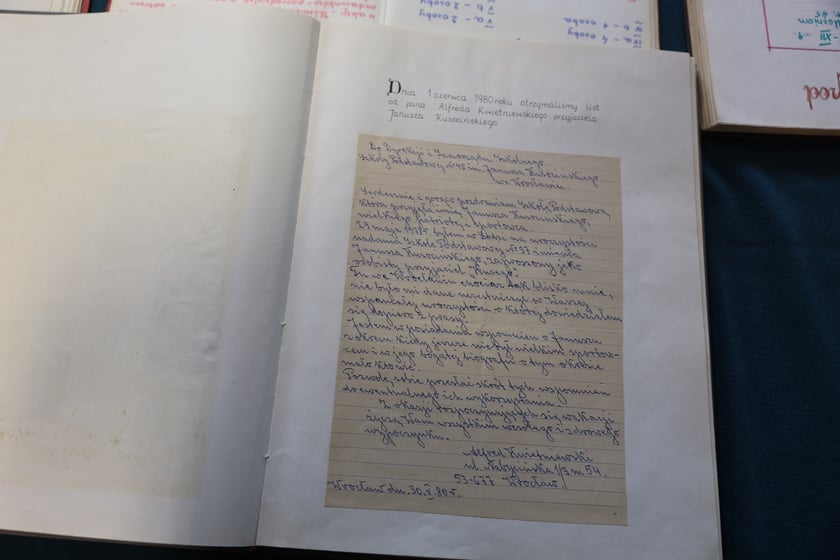 Dnia 1 czerwca 1980 roku otrzymaliśmy list
od pana Alfreda Kwietniewskiego, przyjaciela
Janusza Kusocińskiego
Do Dyrekcji i Samorządu Szkolnego
Szkoły Podstawowej nr 45 im. Janusza Kusocińskiego
we Wrocławiu.
Serdecznie i gorąco pozdrawiam Szkołę Podstawową,
która przyjęła imię Janusza Kusocińskiego,
wielkiego patrioty i sportowca.
29 maja 1978 r byłem w Łodzi na uroczystości
nadania Szkole Podstawowej nr 57 imienia
Janusza Kusocińskiego, zaproszony jako
osobisty przyjaciel Kusego.
Tu we Wrocławiu chociaż tak blisko mnie,
nie było mi dane uczestniczyć w Waszej
wspaniałej uroczystości o której dowiedziałem
się dopiero z prasy.
Jestem w posiadaniu wspomnień o Januszu
z okresu kiedy jeszcze nie był wielkim sportow-
cem i w jego bogatej biografii o tym okresie
mało kto wie.
Pozwolę sobie przesłać skrót tych wspomnień
do ewentualnego ich wykorzystania.
Z okazji rozpoczynających się wakacji
życzę Wam wszystkim wesołego i zdrowego
wypoczynku.
Alfred Kwietniewski
ul. 1/3 m 54.
53-677 Wrocław
Wrocław dn. 30.V.80 r.
IV a - 4 osoby
IV b - 1 osoba
V a - 2 osoby
V b -